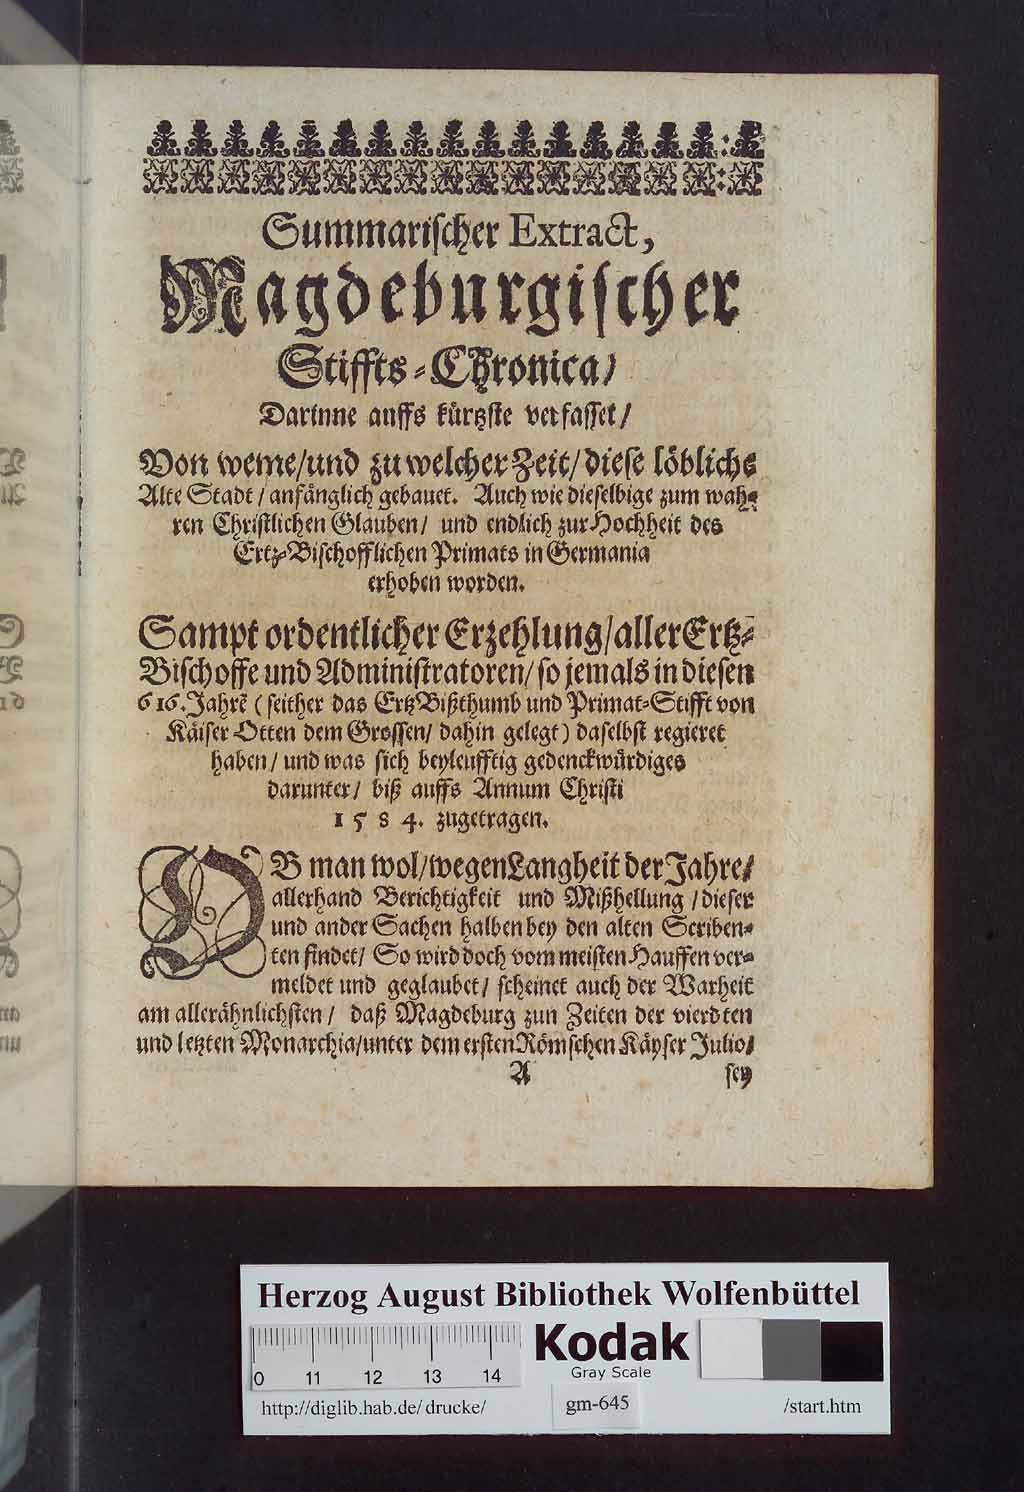 Summarischer Extract,
Magdeburgischer
Stiffts-Chronica/
Darinne auffs kürtzste verfasset/
Von weme/und zu welcher Zeit/diese löbliche
Alte Stadt/anfänglich gebauet. Auch wie dieselbige zum wah-
ren Christlichen Glauben/ und endlich zur Hochheit des
Ertz-Bischofflichen Primats in Germania
erhoben worden.
Sampt ordentlicher Erzehlung/aller Ertz-
Bischoffe und Administratoren/so jemals in diesen
616. Jahrē (seither das ErtzBißthumb und Primat-Stifft von
Käiser Otten dem Grossen/ dahin gelegt) daselbst regieret
haben/ und was sich beyleufftig gedenckwürdiges
darunter/ biß auffs Annum Christi
1584. zugetragen.
OB man wol/wegen Langheit der Jahre/
allerhand Berichtigkeit und Mißhellung/dieser
und ander Sachen halben bey den alten Scriben-
ten findet/ So wird doch vom meisten Hauffen ver-
meldet und geglaubet/ scheinet auch der Warheit
am allerähnlichsten/ daß Magdeburg zun Zeiten der vierdten
und letzten Monarchia/unter dem ersten Römschen Käyser Julio/
A sey
Herzog August Bibliothek Wolfenbüttel
0 11 12 13 14
Kodak
Gray Scale
http://diglib.hab.de/drucke/ gm-645 /start.htm